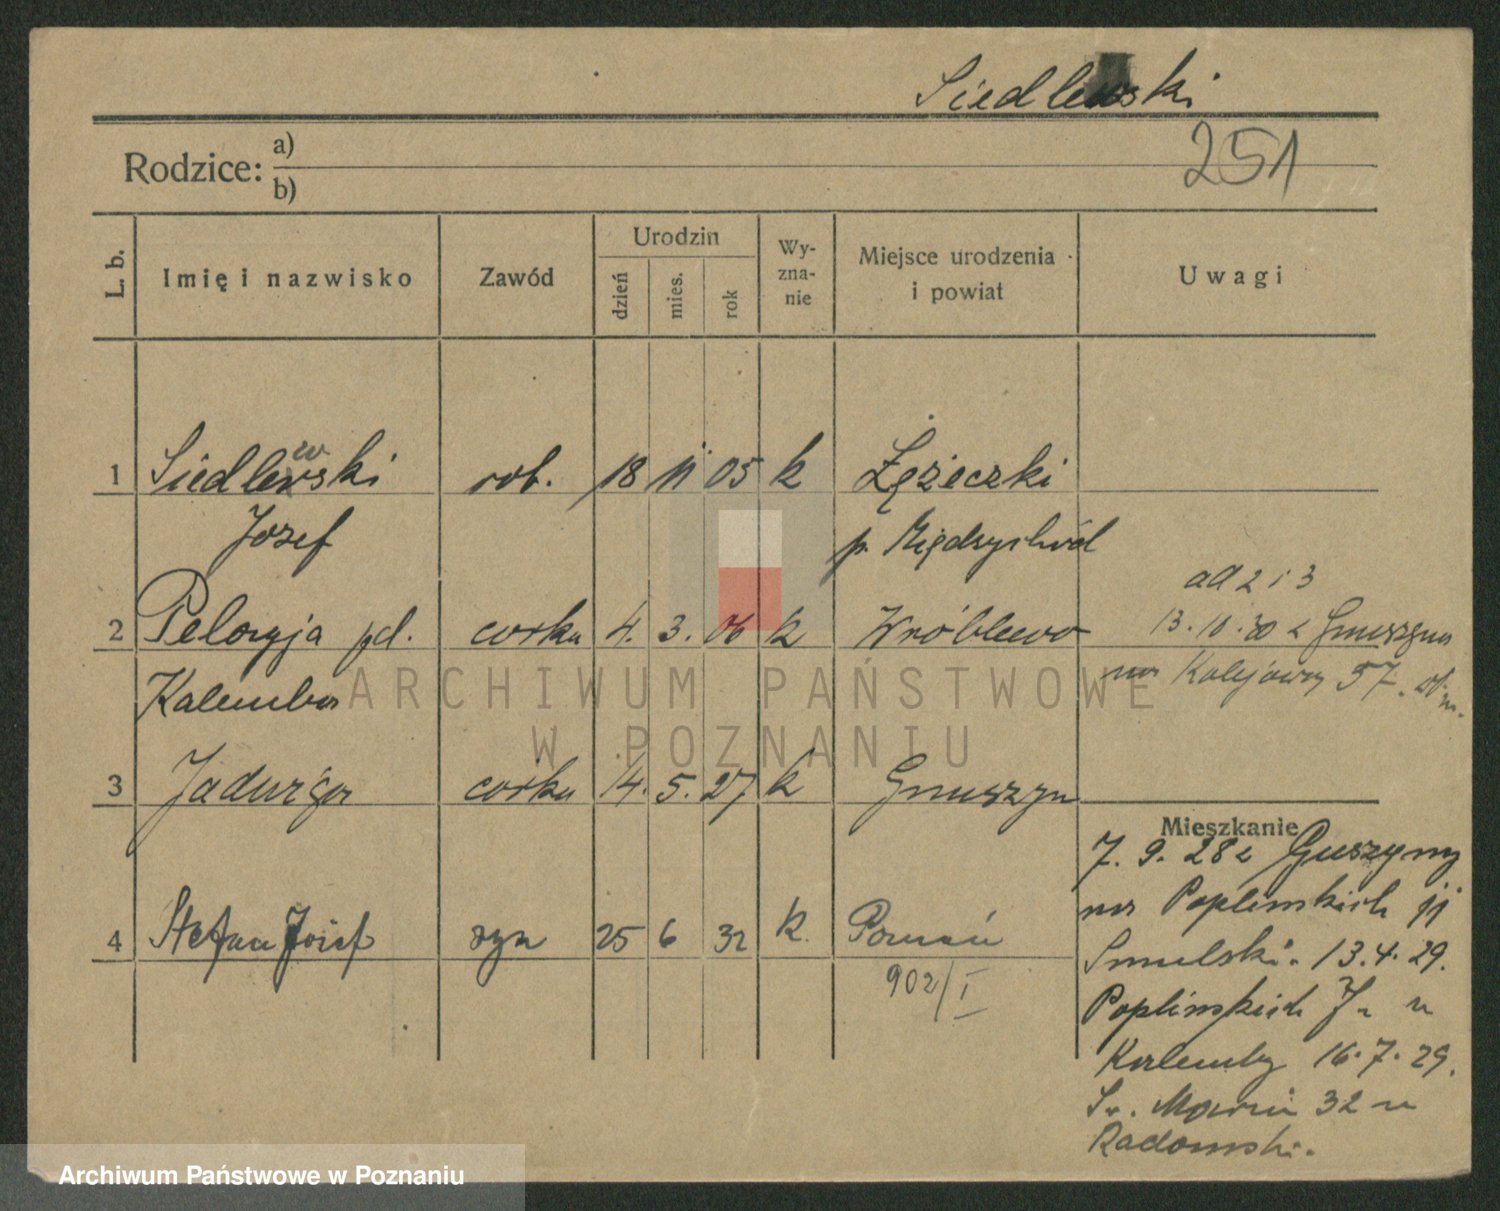 Siedlewski
251
Rodzice: a)
b)
L. b. Imię i nazwisko Zawód Urodzin dzień mies. rok Wy-zna-nie Miejsce urodzenia i powiat Uwagi
1 Siedlewski rob. 18 11 05 k Zężeczki
Józef p. Międzychód
ad 2 i 3
2 Pelagja pd. corka 4. 3. 06 k Wróblewo 13.10.30 z Gnuszyna
Kalemba na Kolejową 57.
ARCHIWUM PAŃSTWOWE
W POZNANIU
3 Jadwiga corka 14. 5. 27 k Gnuszyn
Mieszkanie
7. 9. 28 z Guszyny
na Poplinskich
4 Stefan Józef syn 25 6 32 k. Poznań
Smulski. 13.4.29.
902/I
Poplinskich 7 u
Kalemby 16.7.29.
Św. Marcin 32 u
Radomski.
Archiwum Państwowe w Poznaniu